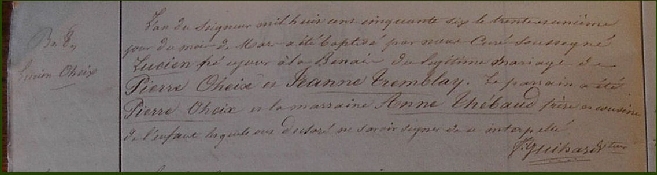 Bat
Lucien Cheix
L'an du Seigneur mil huit cent cinquante six le trente uncième
jour du mois de Mai a été baptisé par nous Curé soussigné
Lucien né a la du légitime mariage de
Pierre Cheix et Jeanne Tremblay. Le parrain a été
Pierre Cheix et la marraine Anne Thibaud frère et cousine
de l'enfant lesquels ont déclaré ne savoir signer de ce interpellé
Guihard